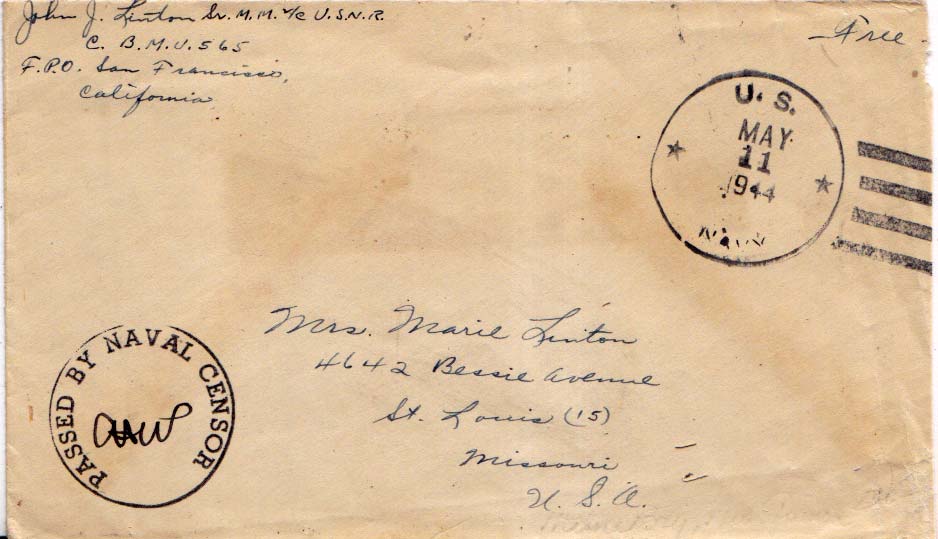 John J. Linton Sr. M.M. 1/c U.S.N.R.
C. B.M.U. 565
F.P.O. San Francisco,
California
Free
U. S.
MAY
11
1944
NAVY
Mrs. Marie Linton
4642 Bessie Avenue
St. Louis (15)
Missouri
U. S. A.
PASSED BY NAVAL CENSOR